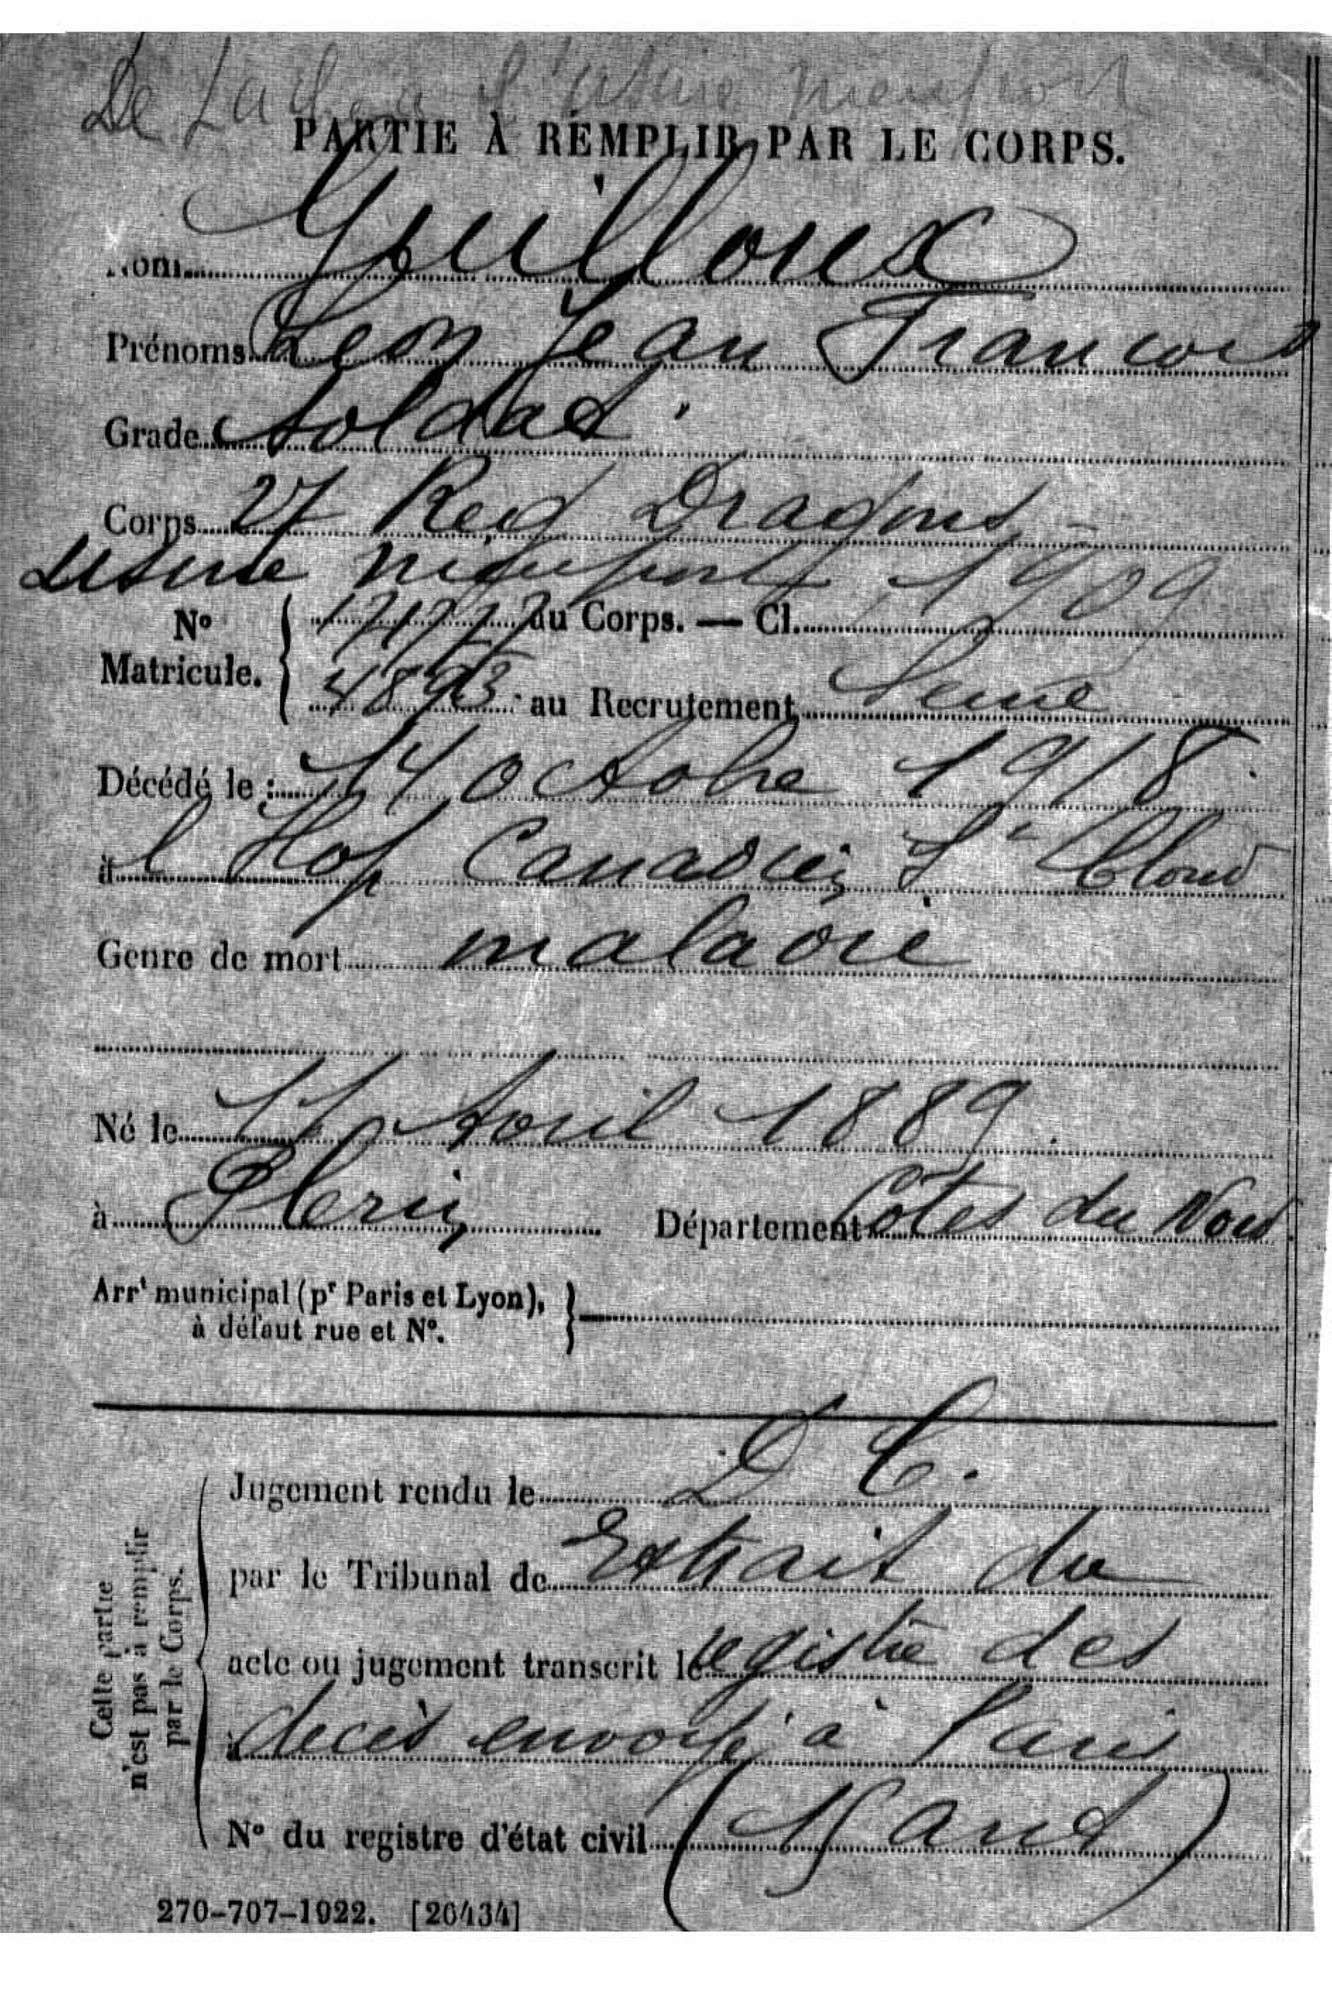 De l'usine Nieuport
PARTIE À REMPLIR PAR LE CORPS.
Nom Guilloux
Prénoms Léon Jean Francois
Grade Soldat.
Corps 27 Reg Dragons -
usine nieuport 1909
No Matricule. au Corps. — Cl.
4893 au Recrutement Seine
Décédé le : 14 octobre 1918.
à l Hop Canadien St Cloud
Genre de mort maladie
Né le 11 Avril 1889.
à Plerin Département Côtes du Nord.
Arrt municipal (pr Paris et Lyon),
à défaut rue et No.
Cette partie n'est pas à remplir par le Corps.
Jugement rendu le D C.
par le Tribunal de Extrait du
acte ou jugement transcrit le registre des
à décès envoyé à Paris
No du registre d'état civil (15 arrt)
270-707-1922. [26434]